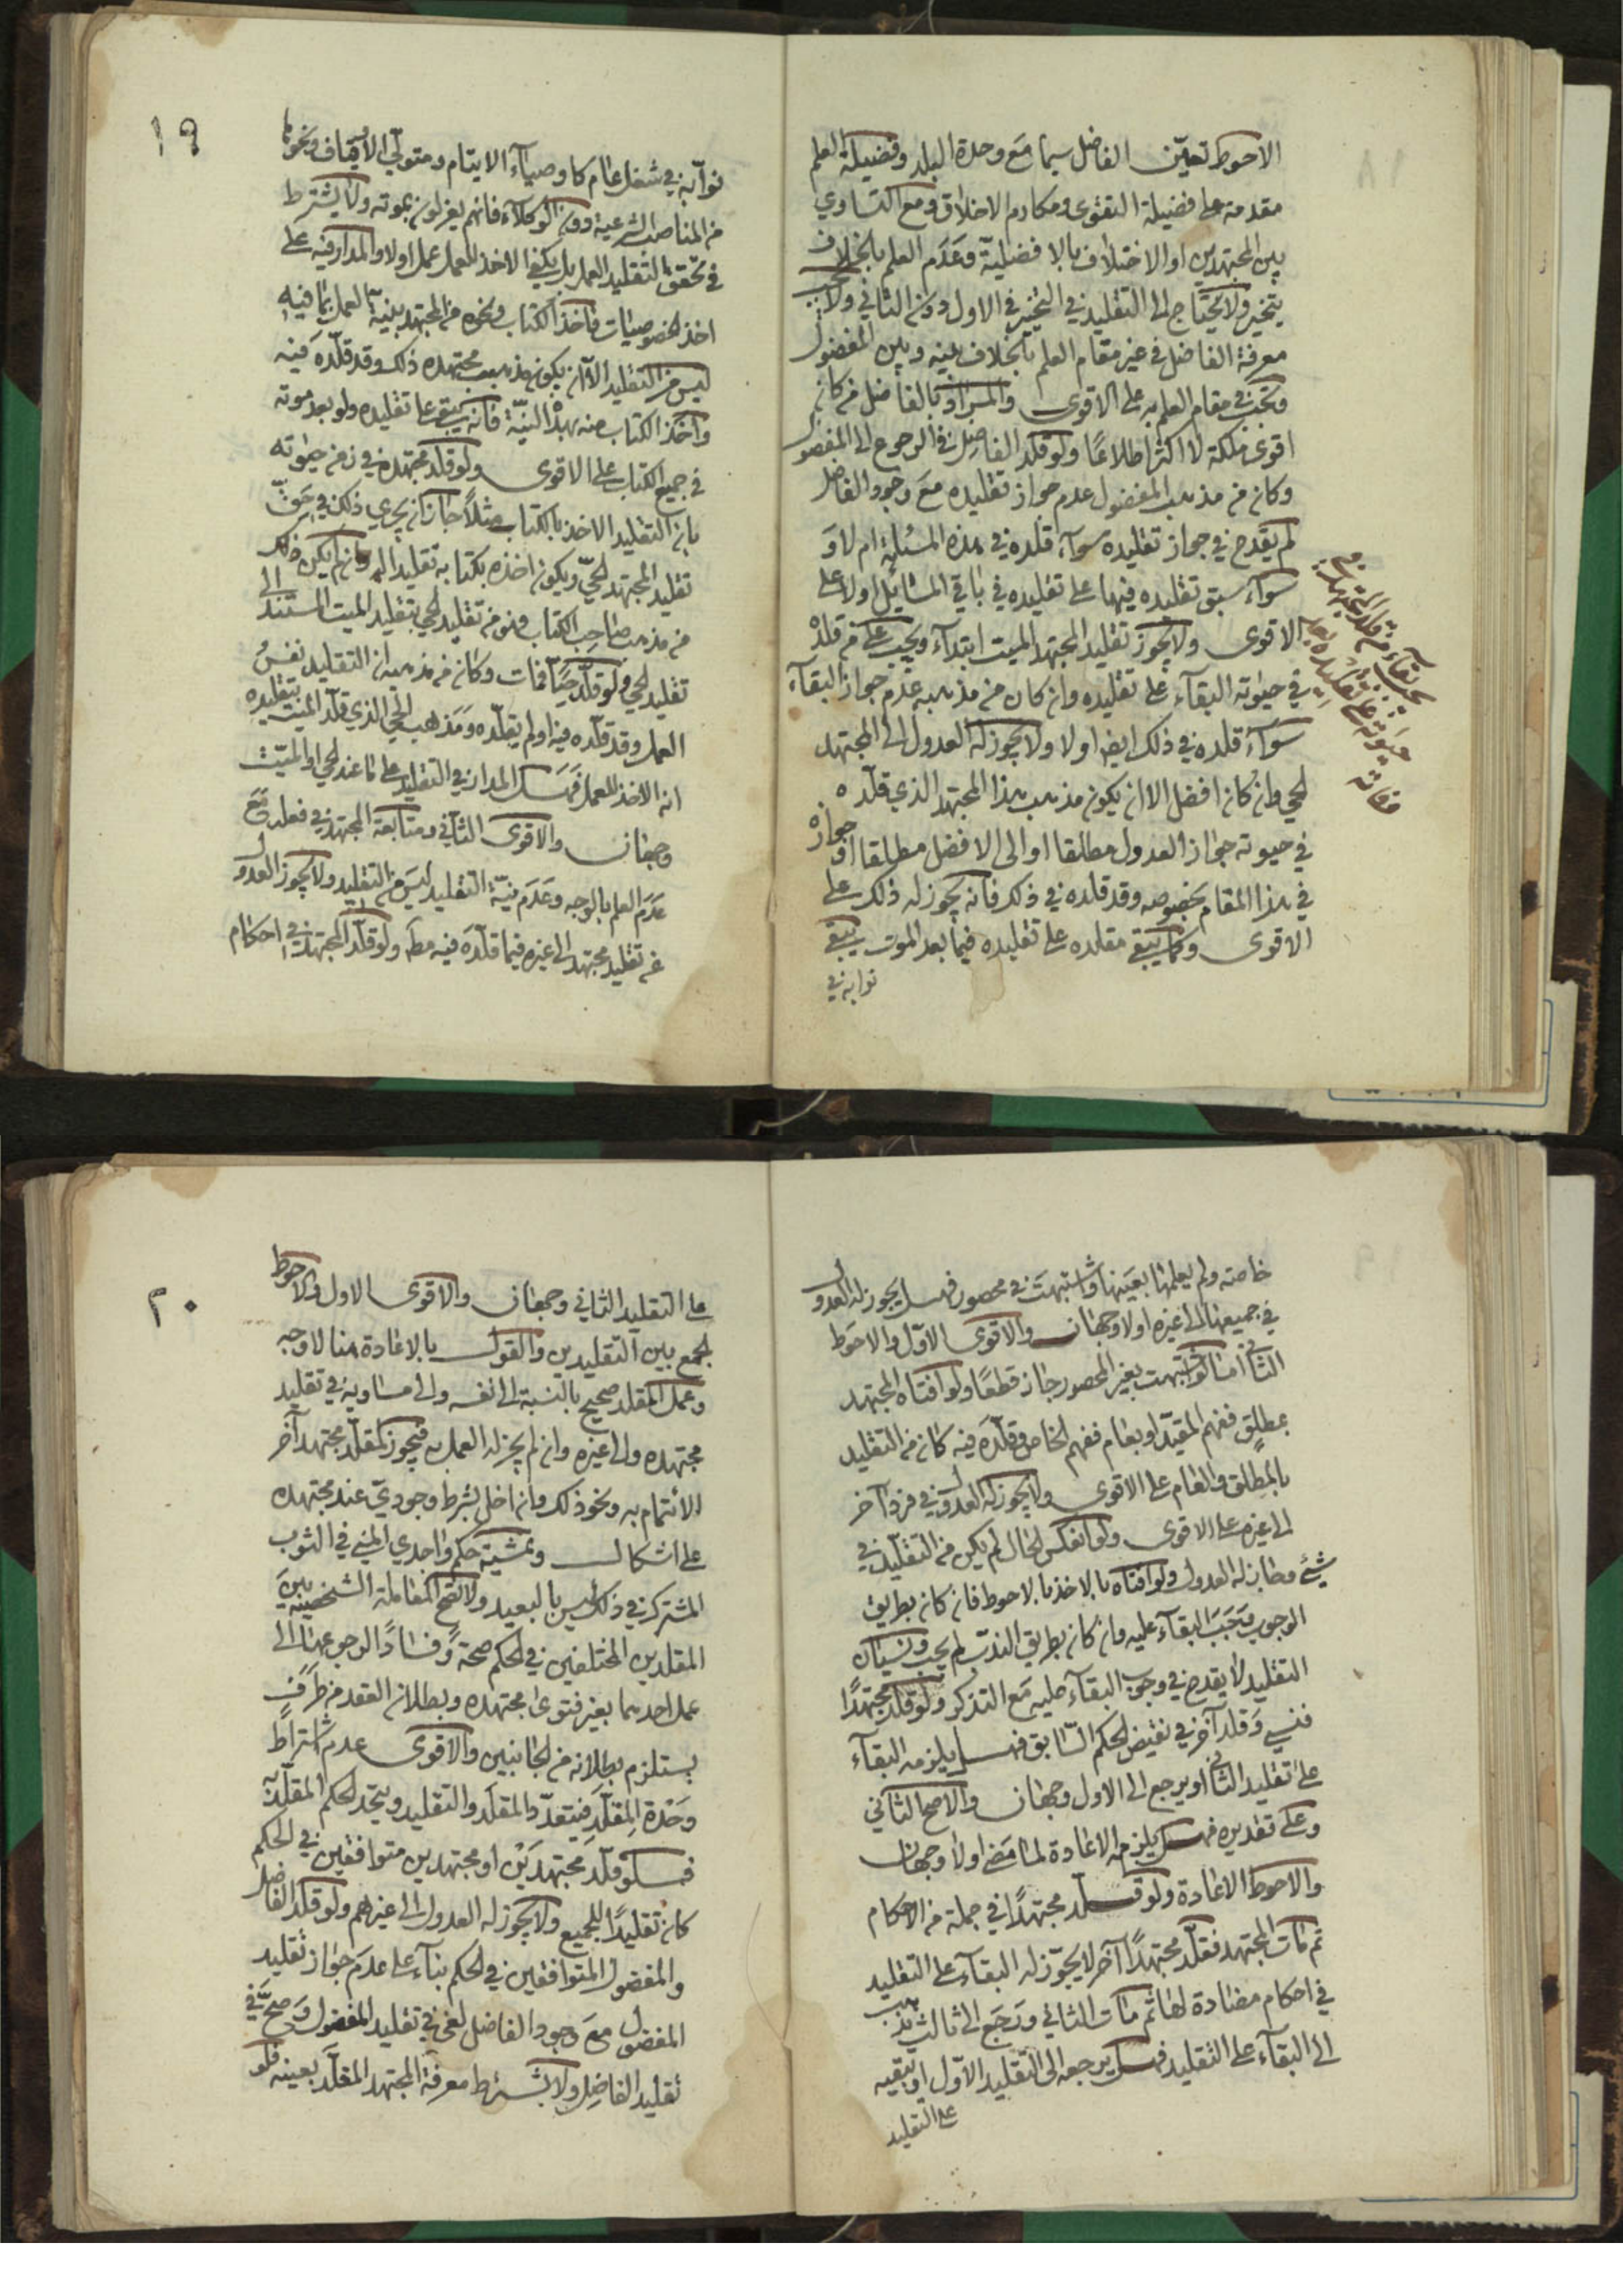 الاحوط تعيّن الفاضل سيما مع وحدة البلد وفضيلة العلم
مقدمة على فضيلة التقوى ومكارم الاخلاق ومع التساوي
بين المجتهدين او الاختلاف بالافضلية وعدم العلم بالخلاف
يتخير ولا يحتاج الى التقليد في التخيير في الاول دون الثاني ولا يجب
معرفة الفاضل في غير مقام العلم بالخلاف بينه وبين المفضول
وتجب في مقام العلم به على الاقوى والمراد بالفاضل من كان
اقوى ملكة لا اكثر اطلاعًا ولو قلد الفاضل في الرجوع الى المفضول
وكان من مذهب المفضول عدم جواز تقليده مع وجود الفاضل
لم يقدح في جواز تقليده سوآء قلده في هذه المسئلة ام لا و
سوآء سبق تقليده فيها على تقليده في باقي المسائل اولا على
الاقوى ولا يجوز تقليد المجتهد الميت ابتدآء ويجب على من قلده
في حيوته البقآء على تقليده وان كان من مذهبه عدم جواز البقآء
سوآء قلده في ذلك ايضا اولا ولا يجوز له العدول الى المجتهد
الحي وان كان افضل الا ان يكون مذهب هذا المجتهد الذي قلده
في حيوته جواز العدول مطلقا او الى الافضل مطلقا او جوازه
في هذا المقام بخصوصه وقد قلده في ذلك فانه يجوز له ذلك على
الاقوى وكما يبقى مقلده على تقليده فيما بعد الموت يبقى
نوابه في
بقآء من قلد المجتهد في
حيوته على تقليده بعد
وفاته
١٩
نوآبه في شغل عام كاوصيآء الايتام ومتولي الاوقاف ونحوها
من المناصب الشرعية دون الوكلآء فانهم يعزلون بموته ولا يشترط
في تحقق التقليد العمل بل يكفي الاخذ للعمل عمل اولا والمدار فيه على
اخذ الخصوصيات فاخذ الكتاب ونحوه من المجتهد بنية العمل بما فيه
ليس من التقليد الا ان يكون مذهب مجتهده ذلك وقد قلده فيه
واخذ الكتاب منه بهذه النيّة فانه يبقى على تقليده ولو بعد موته
في جميع الكتاب على الاقوى ولو قلد مجتهده في زمن حيوته
بان التقليد الاخذ بالكتاب مثلًا جاز ان يجري ذلك في حق
تقليد المجتهد الحيّ ويكون اخذه بكتابه تقليدا له وان لم يكن ذلك
من مذهب صاحب الكتاب وهو من تقليد الحي بتقليد الميت المستند الى
تقليد الحي ولو قلد حيًا فمات وكان من مذهبه ان التقليد نفس
العمل وقد قلّده فيه اولم يقلده ومذهب الحي الذي قلد الميت بتقليده
انه الاخذ للعمل فهل المدار في التقليد على ما عند الحي او الميّت
وجهان والاقوى الثاني ومتابعة المجتهد في فعله مع
عدم العلم بالوجه وعدم نيّة التقليد ليس من التقليد ولا يجوز العدول
عن تقليد مجتهد الى غيره فيما قلده فيه مط ولو قلد المجتهد في احكام
خاصة ولم يعلمها بعينها واشتبهت في محصور فهل يجوز له العدول
في جميعها الى غيره اولا وجهان والاقوى الاوّل والاحوط
الثاني اما لو اشتبهت بغير المحصور جاز قطعًا ولو افتاه المجتهد
بمطلق ففهم المقيّد او بعام ففهم الخاص وقلّده فيه كان من التقليد
بالمطلق والعام على الاقوى ولا يجوز له العدول في فرد آخر
الى غيره على الاقوى ولو انعكس الحال لم يكن من التقليد في
شئ وجاز له العدول ولو افتاه بالاخذ بالاحوط فان كان بطريق
الوجوب وجب البقآء عليه وان كان بطريق الندب لم يجب ونسيان
التقليد لا يقدح في وجوب البقآء عليه مع التذكر ولو قلد مجتهدًا
فنسي وقلد آخر في نقيض الحكم السّابق فهل يلزمه البقآء
على تقليد الثاني او يرجع الى الاول وجهان والاصح الثاني
وعلى تقديره فهل يلزمه الاعادة لما مضى اولا وجهان
والاحوط الاعادة ولو قلد مجتهدًا في جملة من الاحكام
ثم مات المجتهد فقلّد مجتهدًا آخر لا يجوّز له البقآء على التقليد
في احكام مضادة لها ثم مات الثاني ورجع الى ثالث يذهب
الى البقآء على التقليد فهل يرجعه الى التقليد الاوّل او يبقيه
على التقليد
٢٠
على التقليد الثاني وجهان والاقوى الاول والاحوط
الجمع بين التقليدين والقول بالاعادة هنا لا وجه
وعمل المقلد صحيح بالنسبة الى نفسه والى مساويه في تقليد
مجتهده والى غيره وان لم يجز له العمل به فيجوز لمقلّد مجتهد آخر
الائتمام به ونحو ذلك وان اخل بشرط وجوديّ عند مجتهده
على اشكال وتمشية حكم واجدي المني في الثوب
المشترك في ذلك ليس بالبعيد ولا تصح المعاملة الشخصية بين
المقلدين المختلفين في الحكم صحة وفسادًا لرجوعها الى
عمل احدهما بغير فتوى مجتهده وبطلان العقد من طرف
يستلزم بطلانه من الجانبين والاقوى عدم اشتراط
وحدة المقلَّد فيتعدّد المقلد والتقليد ويتحد الحكم المقلّد به
فلو قلّد مجتهدين او مجتهدين متوافقين في الحكم
كان تقليدًا للجميع ولا يجوز له العدول الى غيرهم ولو قلد الفاضل
والمفضول المتوافقين في الحكم بناء على عدم جواز تقليد
المفضول مع وجود الفاضل لغى في تقليد المفضول وصحّ في
تقليد الفاضل ولا يشترط معرفة المجتهد المقلّد بعينه فلو